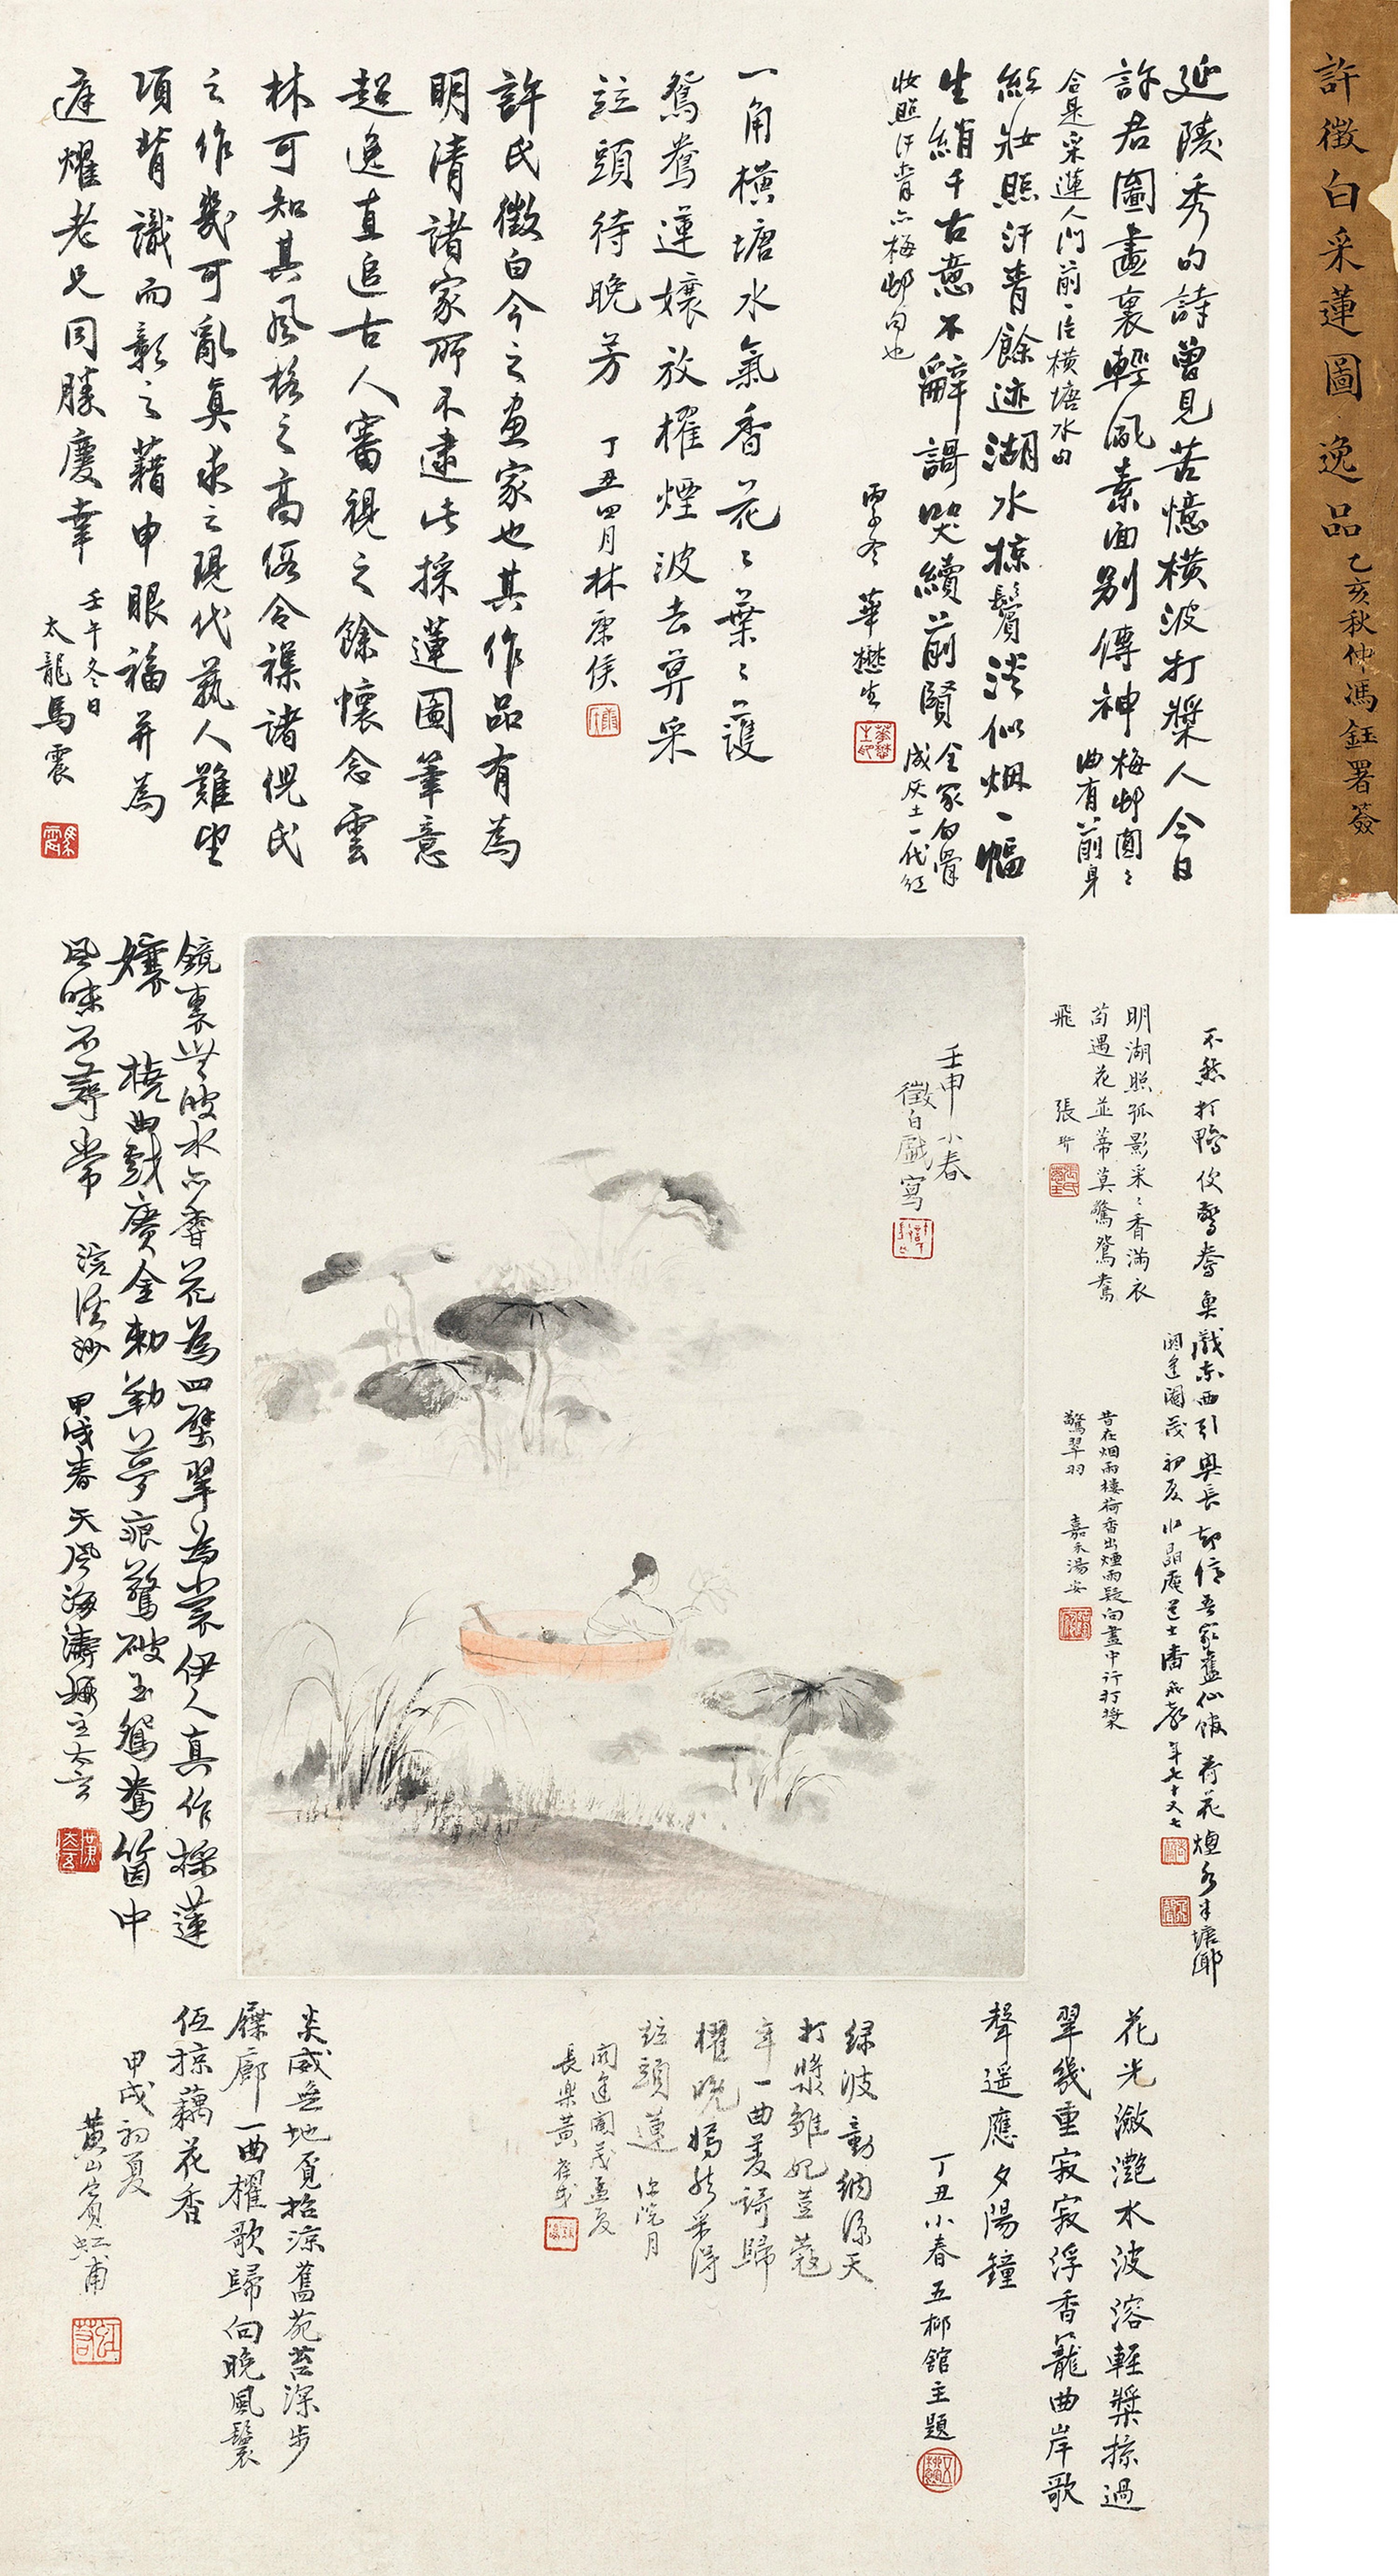 許徵白采蓮圖 逸品 乙亥秋仲馮鈺署簽
延陵秀句詩曾見苦憶橫波打槳人今日
許君圖畫裏輕風素面別傳神 梅邨圓圓曲有前身
合是采蓮人門前一片橫塘水句
紅妝照汗青餘迹湖水掠鬢淡似烟一幅
生綃千古意不辭謌哭續前賢 全家白骨成灰土一代紅
妝照汗青亦梅邨句也
丙子冬 華懋生
一角橫塘水氣香花花葉葉護
鴛鴦蓮孃放櫂煙波去算采
竝頭待晚芳 丁丑四月林康侯
許氏徵白今之画家也其作品有為
明清諸家所不逮此採蓮圖筆意
超逸直追古人審視之餘懷念雲
林可知其風格之高倘令襍諸倪氏
之作幾可亂真求之現代藝人難望
項背識而彰之藉申眼福并為
庭燿老兄同勝慶幸 壬午冬日
太龍馬震
壬申小春
徵白戲寫
不愁打鴨使驚鴦魚戲東西引興長却信吾家舊仙館荷花煙水半塘鄉
閼逢閹茂初夏水晶庵道士潘飛聲年七十又七
明湖照孤影采采香滿衣
茍遇花並蒂莫驚鴛鴦
飛 張
昔在烟雨樓荷香出煙雨疑向畫中行打槳
驚翠羽 嘉禾湯安
鏡裏無波水亦香花為四壁翠為裳伊人真作採蓮
孃 橈曲戲賡金勅勒夢痕驚破玉鴛鴦箇中
風味不尋常 浣溪沙 甲戌春天風海濤樓主大玄
花光瀲灧水波溶輕槳掠過
翠幾重寂寂浮香籠曲岸歌
聲遥應夕陽鐘
丁丑小春五柳館主題
綠波動納涼天
打槳雛妃荳蔻
年一曲菱謌歸
櫂晚嫣然采得
竝頭蓮
閼逢閹茂孟夏
長樂黃葆戉
炎威無地覓招涼舊苑苔深步
屧廊一曲櫂歌歸向晚風鬟
低掠藕花香
甲戌初夏
黃山賓虹甫